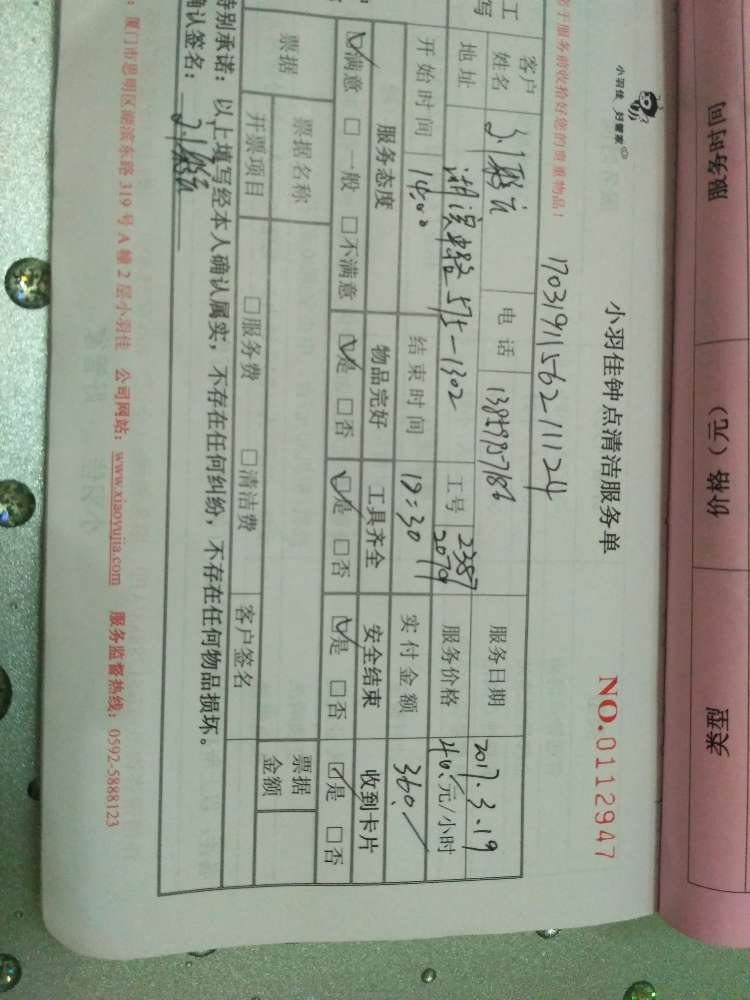 服务时间
价格（元）
类型
小羽佳 好管家
小羽佳钟点清洁服务单
NO.0112947
于服务前收拾好您的贵重物品！
17031911562111124
客户姓名
电话
服务日期 2017.3.19
地址
575-1302
工号 2387 2079
服务价格 元/小时
开始时间 14:00
结束时间 19:30
实付金额 360.
服务态度 物品完好 工具齐全 安全结束 收到卡片
☑满意 □一般 □不满意 ☑是 □否 ☑是 □否 ☑是 □否 ☑是 □否
票据 票据名称 客户签名 票据金额
开票项目 □服务费 □清洁费
特别承诺：以上填写经本人确认属实，不存在任何纠纷，不存在任何物品损坏。
确认签名：
厦门市思明区湖滨东路319号A幢2层小羽佳 公司网站：www.xiaoyujia.com 服务监督热线：0592-5888123